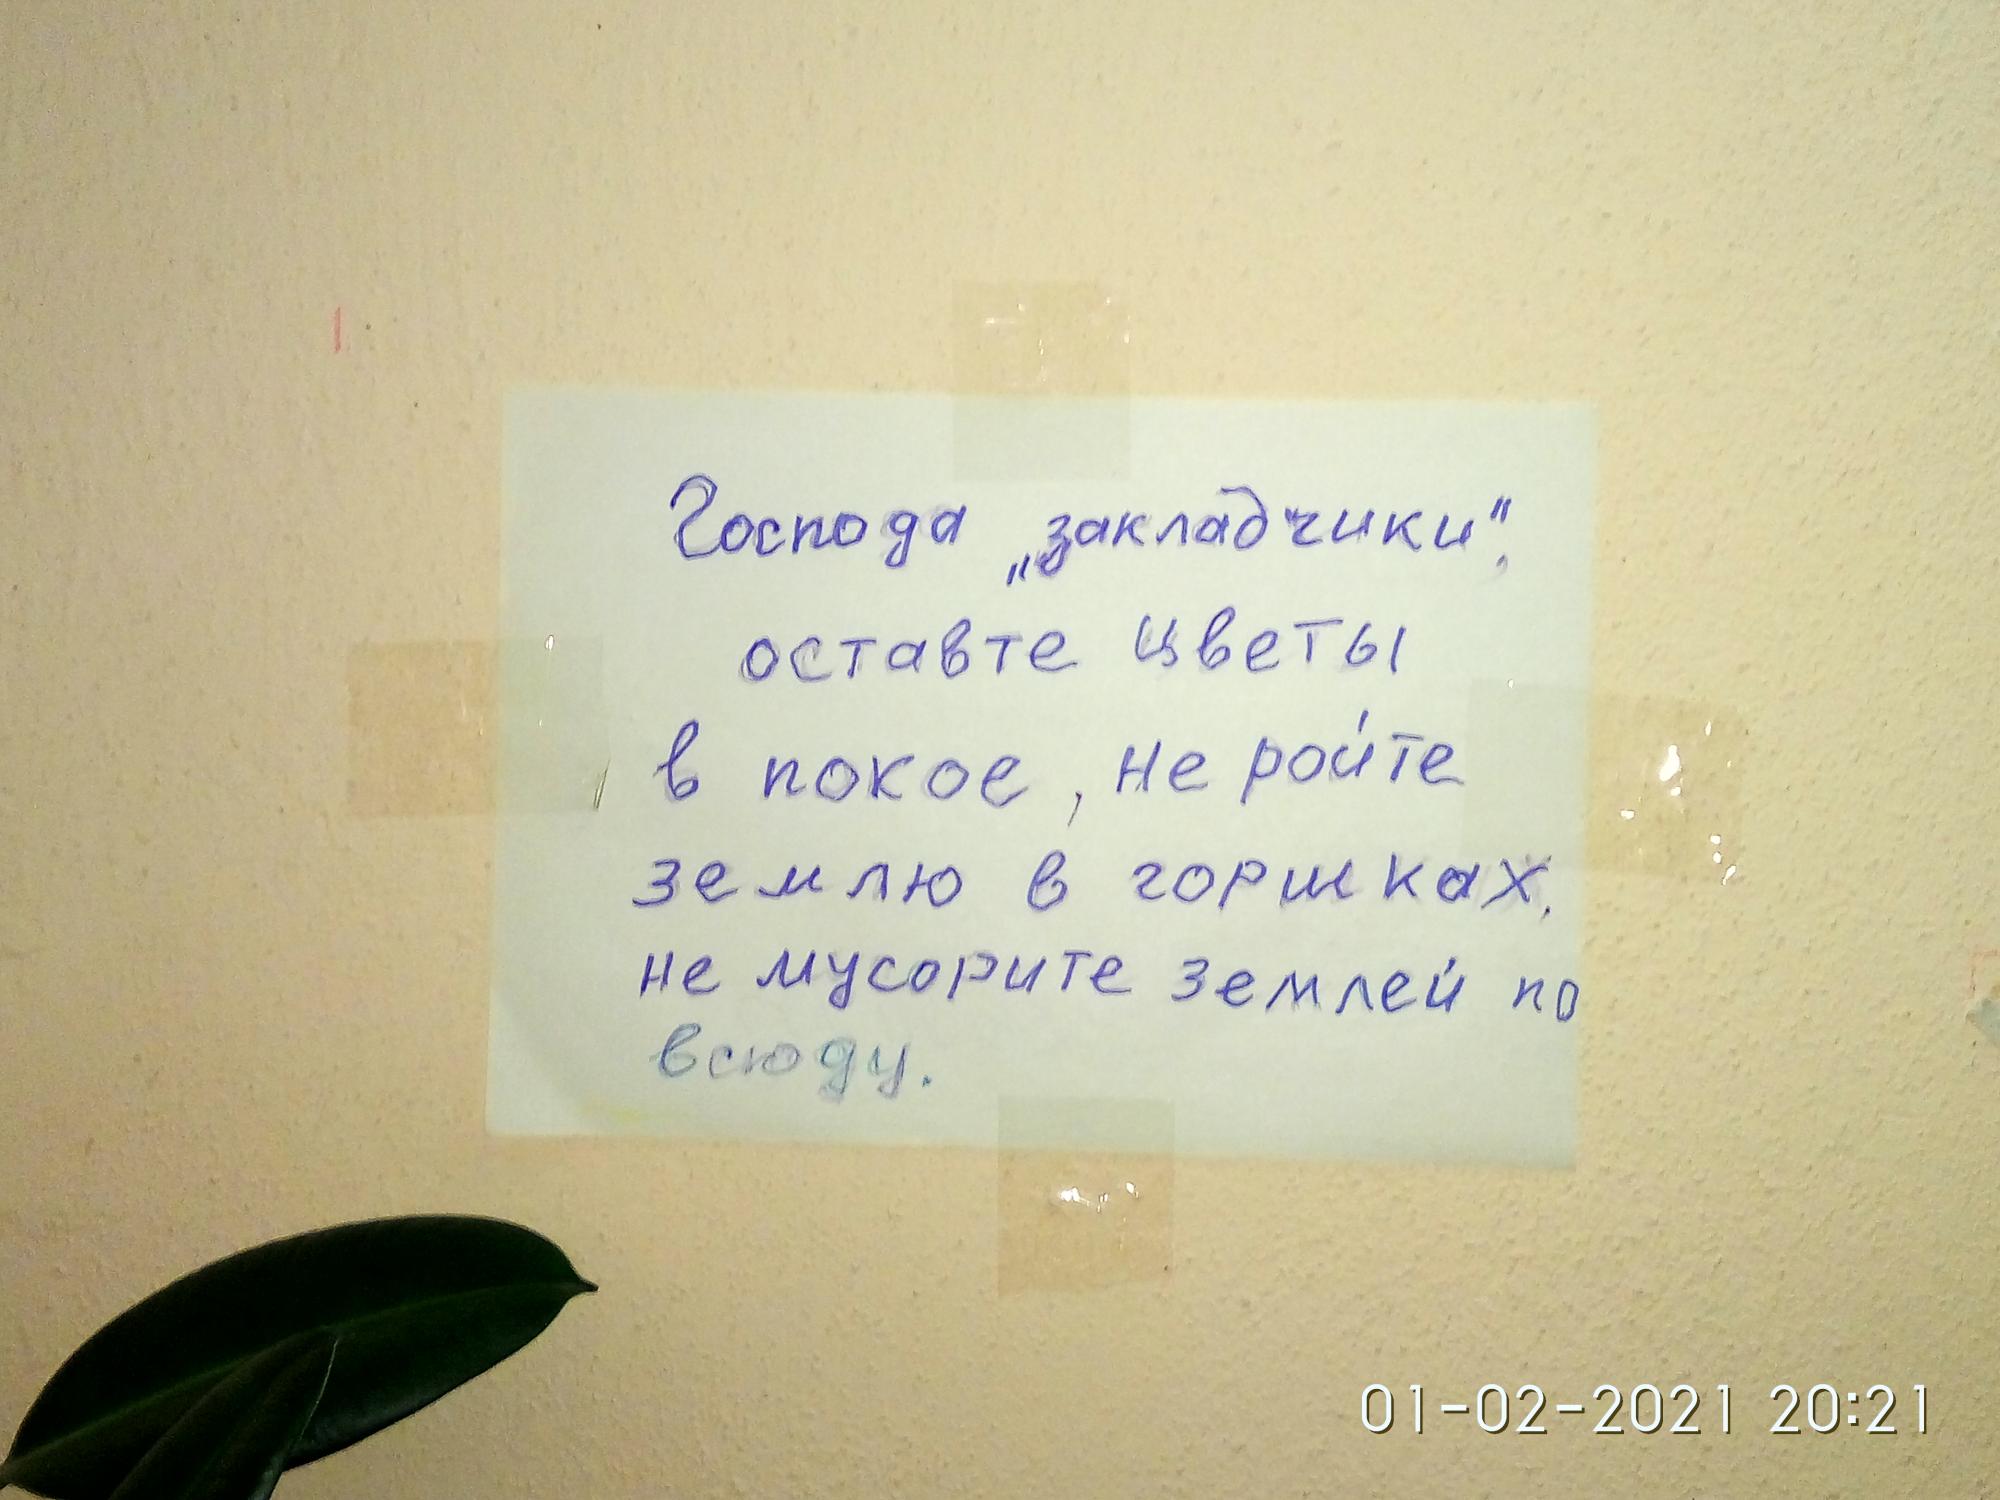 Господа „закладчики“,
оставте цветы
в покое, не ройте
землю в горшках,
не мусорите землей по
всюду.
01-02-2021 20:21